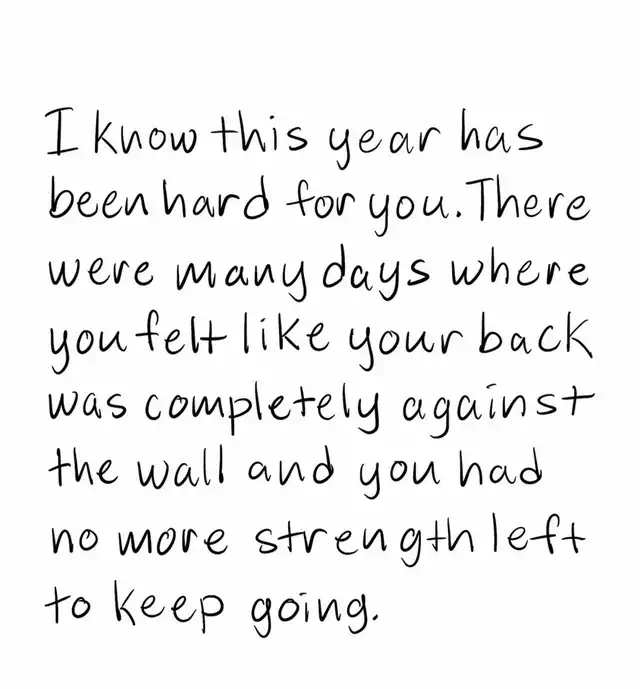 I know this year has
been hard for you. There
were many days where
you felt like your back
was completely against
the wall and you had
no more strength left
to keep going.